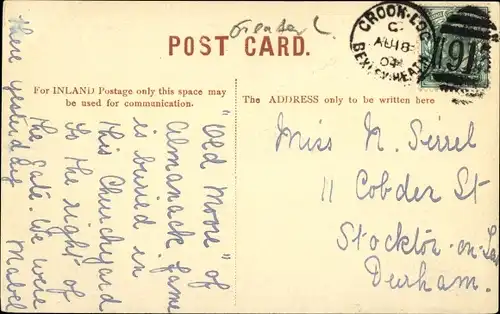 POST CARD.
For INLAND Postage only this space may
be used for communication.
The ADDRESS only to be written here
CROOK-LOG
C
AU 18
04
BEXLEY-HEATH
"Old Moore" of
Almanack fame
is buried in
this Churchyard
to the right of
the gate. We were
there yesterday
Mabel
Miss N. Serrel
11 Cobden St
Stockton-on-Tees
Durham.